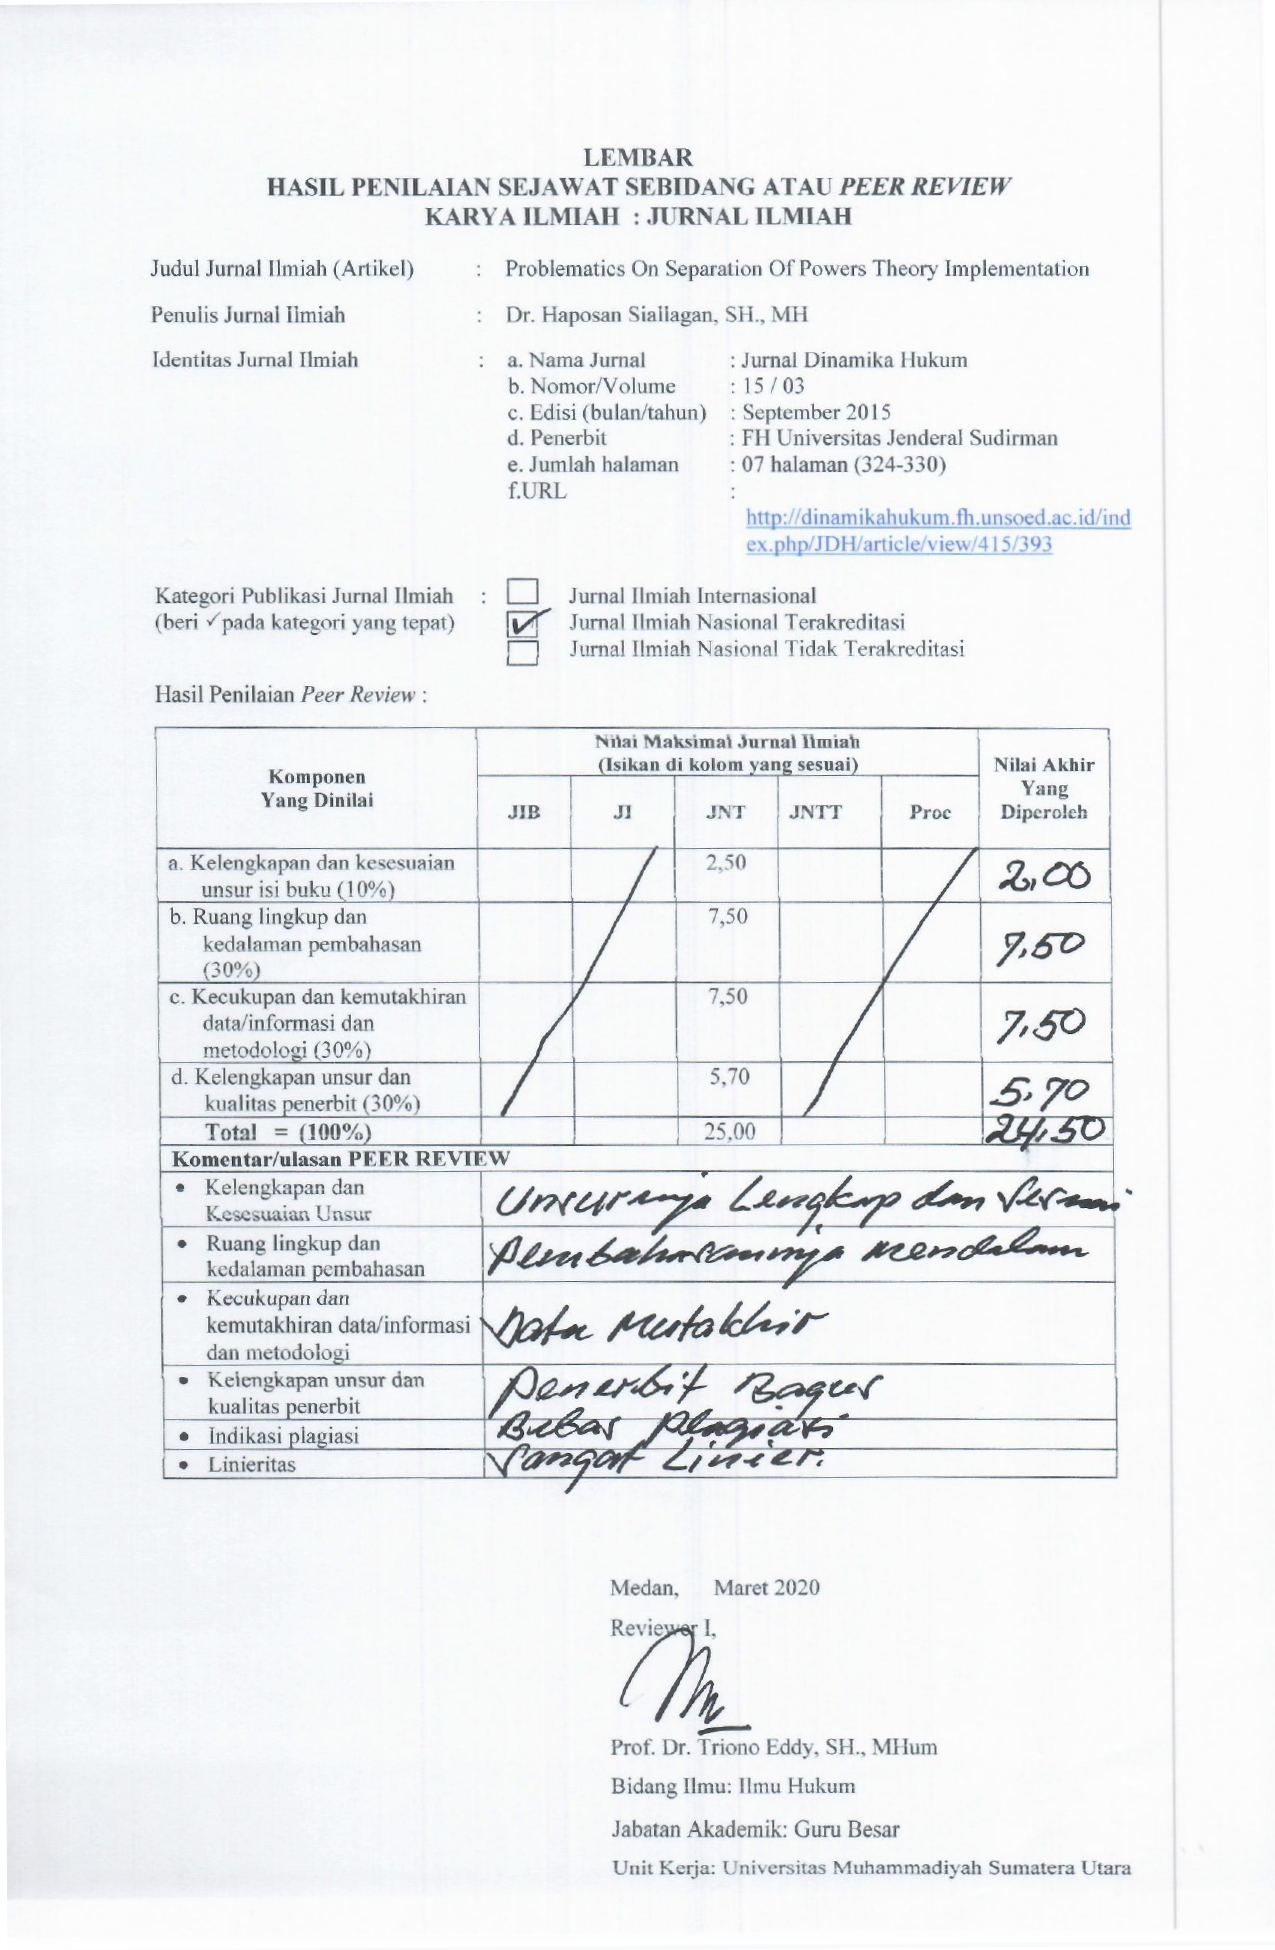 LEMBAR
HASIL PENILAIAN SEJAWAT SEBIDANG ATAU PEER REVIEW
KARYA ILMIAH : JURNAL ILMIAH
Judul Jurnal Ilmiah (Artikel) : Problematics On Separation Of Powers Theory Implementation
Penulis Jurnal Ilmiah : Dr. Haposan Siallagan, SH., MH
Identitas Jurnal Ilmiah : a. Nama Jurnal : Jurnal Dinamika Hukum
b. Nomor/Volume : 15 / 03
c. Edisi (bulan/tahun) : September 2015
d. Penerbit : FH Universitas Jenderal Sudirman
e. Jumlah halaman : 07 halaman (324-330)
f.URL :
http://dinamikahukum.fh.unsoed.ac.id/ind
ex.php/JDH/article/view/415/393
Kategori Publikasi Jurnal Ilmiah : Jurnal Ilmiah Internasional
(beri ✓pada kategori yang tepat) ✓ Jurnal Ilmiah Nasional Terakreditasi
Jurnal Ilmiah Nasional Tidak Terakreditasi
Hasil Penilaian Peer Review :
Komponen
Yang Dinilai
Nilai Maksimal Jurnal Ilmiah
(Isikan di kolom yang sesuai)
JIB JI JNT JNTT Proc
Nilai Akhir
Yang
Diperoleh
a. Kelengkapan dan kesesuaian
unsur isi buku (10%) 2,50 2,00
b. Ruang lingkup dan
kedalaman pembahasan
(30%) 7,50 7,50
c. Kecukupan dan kemutakhiran
data/informasi dan
metodologi (30%) 7,50 7,50
d. Kelengkapan unsur dan
kualitas penerbit (30%) 5,70 5,70
Total = (100%) 25,00 24,50
Komentar/ulasan PEER REVIEW
• Kelengkapan dan
Kesesuaian Unsur
Unsurnya Lengkap dan Sesuai
• Ruang lingkup dan
kedalaman pembahasan
Pembahasannya Mendalam
• Kecukupan dan
kemutakhiran data/informasi
dan metodologi
Data Mutakhir
• Kelengkapan unsur dan
kualitas penerbit
Penerbit Bagus
• Indikasi plagiasi Bebas Plagiasi
• Linieritas Sangat Linier.
Medan, Maret 2020
Reviewer I,
Prof. Dr. Triono Eddy, SH., MHum
Bidang Ilmu: Ilmu Hukum
Jabatan Akademik: Guru Besar
Unit Kerja: Universitas Muhammadiyah Sumatera Utara